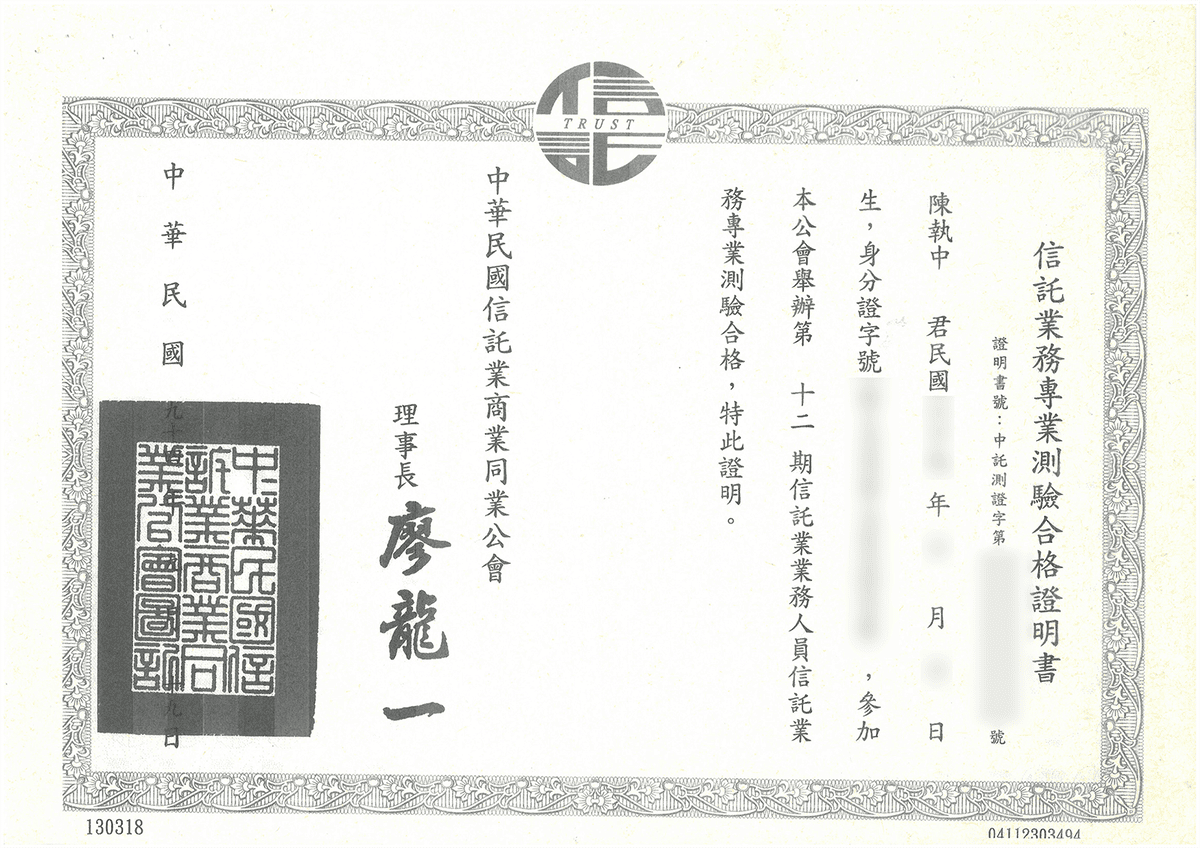 TRUST
信託業務專業測驗合格證明書
證明書號：中託測證字第 號
陳執中 君民國 年 月 日
生，身分證字號 ，參加
本公會舉辦第 十二 期信託業業務人員信託業
務專業測驗合格，特此證明。
中華民國信託業商業同業公會
理事長 廖龍一
中華民國 九十 年 九日
中華民國信
託業商業同
業公會圖記
130318
04112303494